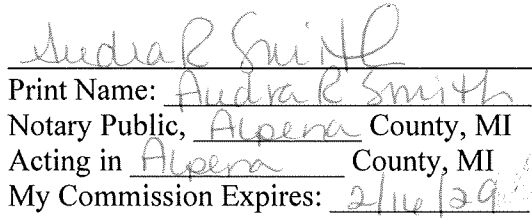 Audra R Smith
Print Name: Audra R Smith
Notary Public, Alpena County, MI
Acting in Alpena County, MI
My Commission Expires: 2/16/29